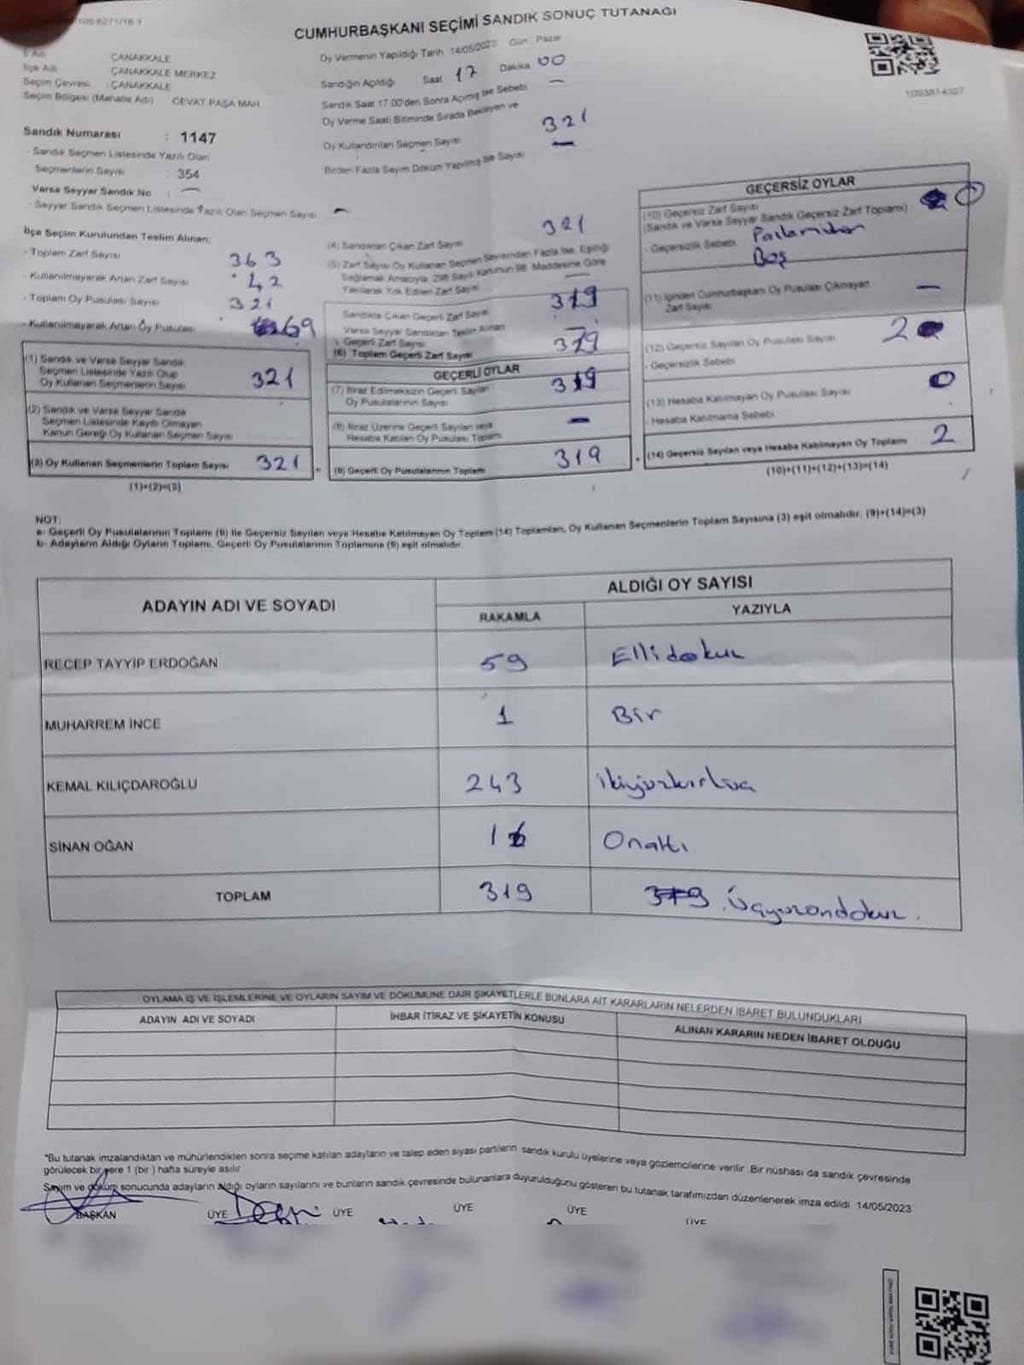 CUMHURBAŞKANI SEÇİMİ SANDIK SONUÇ TUTANAĞI
İl Adı ÇANAKKALE
İlçe Adı ÇANAKKALE MERKEZ
Seçim Çevresi : ÇANAKKALE
Seçim Bölgesi (Mahalle Adı) CEVAT PAŞA MAH.
Sandık Numarası : 1147
- Sandık Seçmen Listesinde Yazılı Olan
Seçmenlerin Sayısı : 354
Varsa Seyyar Sandık No : —
- Seyyar Sandık Seçmen Listesinde Yazılı Olan Seçmen Sayısı —
Oy Vermenin Yapıldığı Tarih 14/05/2023 Gün : Pazar
Sandığın Açıldığı Saat 17 Dakika 00
Sandık Saat 17:00'den Sonra Açılmış İse Sebebi —
Oy Verme Saati Bitiminde Sırada Bekleyen ve
Oy Kullandırılan Seçmen Sayısı 321
Birden Fazla Sayım Döküm Yapılmış İse Sayısı —
İlçe Seçim Kurulundan Teslim Alınan:
- Toplam Zarf Sayısı 363
- Kullanılmayarak Artan Zarf Sayısı 42
- Toplam Oy Pusulası Sayısı 321
- Kullanılmayarak Artan Oy Pusulası 69
(1) Sandık ve Varsa Seyyar Sandık
Seçmen Listesinde Yazılı Olup
Oy Kullanan Seçmenlerin Sayısı 321
(2) Sandık ve Varsa Seyyar Sandık
Seçmen Listesinde Kayıtlı Olmayan
Kanun Gereği Oy Kullanan Seçmen Sayısı
(3) Oy Kullanan Seçmenlerin Toplam Sayısı 321
(1)+(2)=(3)
(4) Sandıktan Çıkan Zarf Sayısı 321
(5) Zarf Sayısı Oy Kullanan Seçmen Sayısından Fazla İse, Eşitliği
Sağlamak Amacıyla, 298 Sayılı Kanunun 98. Maddesine Göre
Yakılarak Yok Edilen Zarf Sayısı —
Sandıkta Çıkan Geçerli Zarf Sayısı 319
Varsa Seyyar Sandıktan Teslim Alınan
Geçerli Zarf Sayısı —
(6) Toplam Geçerli Zarf Sayısı 319
GEÇERLİ OYLAR
(7) İtiraz Edilmeksizin Geçerli Sayılan
Oy Pusulalarının Sayısı 319
(8) İtiraz Üzerine Geçerli Sayılan veya
Hesaba Katılan Oy Pusulası Toplamı —
(9) Geçerli Oy Pusulalarının Toplamı 319
GEÇERSİZ OYLAR
(10) Geçersiz Zarf Sayısı
(Sandık ve Varsa Seyyar Sandık Geçersiz Zarf Toplamı) 0
- Geçersizlik Sebebi
Boş
(11) İçinden Cumhurbaşkanı Oy Pusulası Çıkmayan
Zarf Sayısı —
(12) Geçersiz Sayılan Oy Pusulası Sayısı 2
- Geçersizlik Sebebi
(13) Hesaba Katılmayan Oy Pusulası Sayısı 0
- Hesaba Katılmama Sebebi
(14) Geçersiz Sayılan veya Hesaba Katılmayan Oy Toplamı 2
(10)+(11)+(12)+(13)=(14)
NOT:
a- Geçerli Oy Pusulalarının Toplamı (9) ile Geçersiz Sayılan veya Hesaba Katılmayan Oy Toplamı (14) Toplamları, Oy Kullanan Seçmenlerin Toplam Sayısına (3) eşit olmalıdır. (9)+(14)=(3)
b- Adayların Aldığı Oyların Toplamı, Geçerli Oy Pusulalarının Toplamına (9) eşit olmalıdır.
ADAYIN ADI VE SOYADI ALDIĞI OY SAYISI
RAKAMLA YAZIYLA
RECEP TAYYİP ERDOĞAN 59 Ellidokuz
MUHARREM İNCE 1 Bir
KEMAL KILIÇDAROĞLU 243 ikiyüzkırküç
SİNAN OĞAN 16 Onaltı
TOPLAM 319 319 Üçyüzondokuz.
OYLAMA İŞ VE İŞLEMLERİNE VE OYLARIN SAYIM VE DÖKÜMÜNE DAİR ŞİKAYETLERLE BUNLARA AİT KARARLARIN NELERDEN İBARET BULUNDUKLARI
ADAYIN ADI VE SOYADI İHBAR İTİRAZ VE ŞİKAYETİN KONUSU ALINAN KARARIN NEDEN İBARET OLDUĞU
*Bu tutanak imzalandıktan ve mühürlendikten sonra seçime katılan adayların ve talep eden siyasi partilerin sandık kurulu üyelerine veya gözlemcilerine verilir. Bir nüshası da sandık çevresinde
görülecek bir yere 1 (bir ) hafta süreyle asılır
Sayım ve döküm sonucunda adayların aldığı oyların sayılarını ve bunların sandık çevresinde bulunanlara duyurulduğunu gösteren bu tutanak tarafımızdan düzenlenerek imza edildi. 14/05/2023
BAŞKAN ÜYE ÜYE ÜYE ÜYE ÜYE